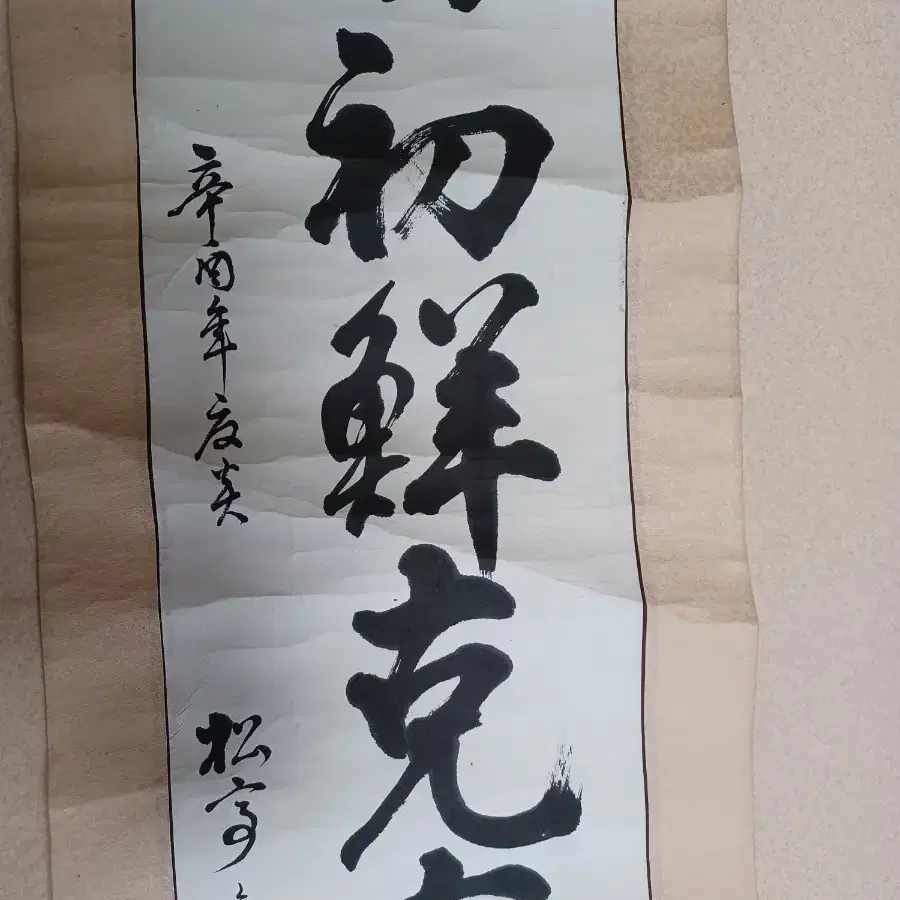 初鮮克
辛酉年夜炎
松亭